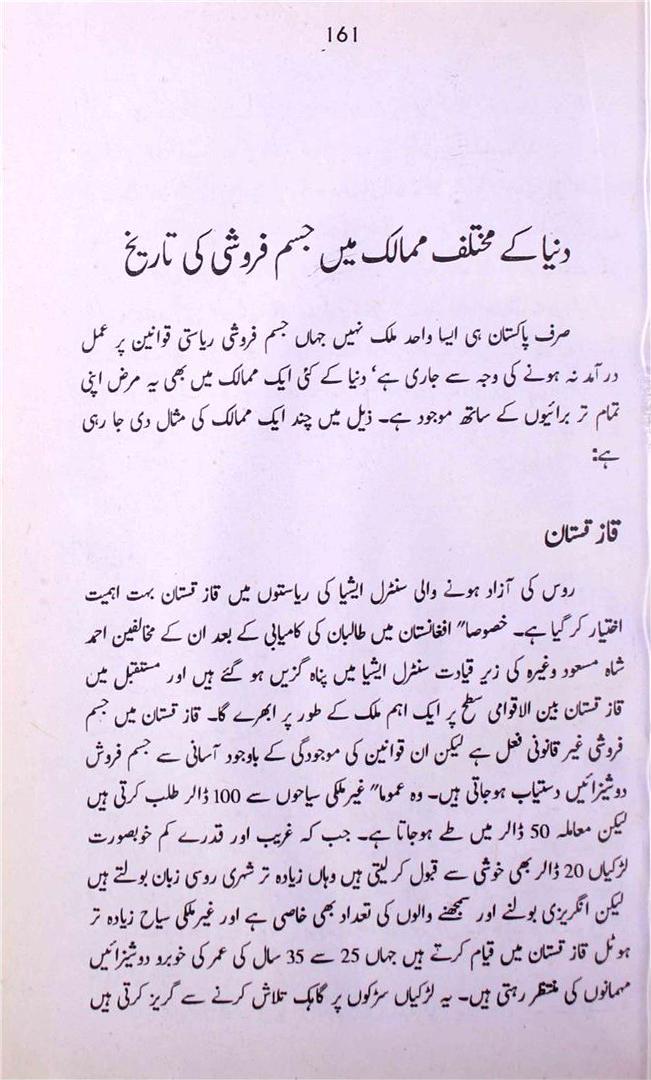 161
دنیا کے مختلف ممالک میں جسم فروشی کی تاریخ
صرف پاکستان ہی ایسا واحد ملک نہیں جہاں جسم فروشی ریاستی قوانین پر عمل
در آمد نہ ہونے کی وجہ سے جاری ہے‘ دنیا کے کئی ایک ممالک میں بھی یہ مرض اپنی
تمام تر برائیوں کے ساتھ موجود ہے۔ ذیل میں چند ایک ممالک کی مثال دی جا رہی
ہے:
قاز قستان
روس کی آزاد ہونے والی سنٹرل ایشیا کی ریاستوں میں قاز قستان بہت اہمیت
اختیار کر گیا ہے۔ خصوصا" افغانستان میں طالبان کی کامیابی کے بعد ان کے مخالفین احمد
شاہ مسعود وغیرہ کی زیر قیادت سنٹرل ایشیا میں پناہ گزیں ہو گئے ہیں اور مستقبل میں
قاز قستان بین الاقوامی سطح پر ایک اہم ملک کے طور پر ابھرے گا۔ قاز قستان میں جسم
فروشی غیر قانونی فعل ہے لیکن ان قوانین کی موجودگی کے باوجود آسانی سے جسم فروش
دوشیزائیں دستیاب ہوجاتی ہیں۔ وہ عموما" غیرملکی سیاحوں سے 100 ڈالر طلب کرتی ہیں
لیکن معاملہ 50 ڈالر میں طے ہوجاتا ہے۔ جب کہ غریب اور قدرے کم خوبصورت
لڑکیاں 20 ڈالر بھی خوشی سے قبول کرلیتی ہیں وہاں زیادہ تر شہری روسی زبان بولتے ہیں
لیکن انگریزی بولنے اور سمجھنے والوں کی تعداد بھی خاصی ہے اور غیرملکی سیاح زیادہ تر
ہوٹل قاز قستان میں قیام کرتے ہیں جہاں 25 سے 35 سال کی عمر کی خوبرو دوشیزائیں
مہمانوں کی منتظر رہتی ہیں۔ یہ لڑکیاں سڑکوں پر گاہک تلاش کرنے سے گریز کرتی ہیں